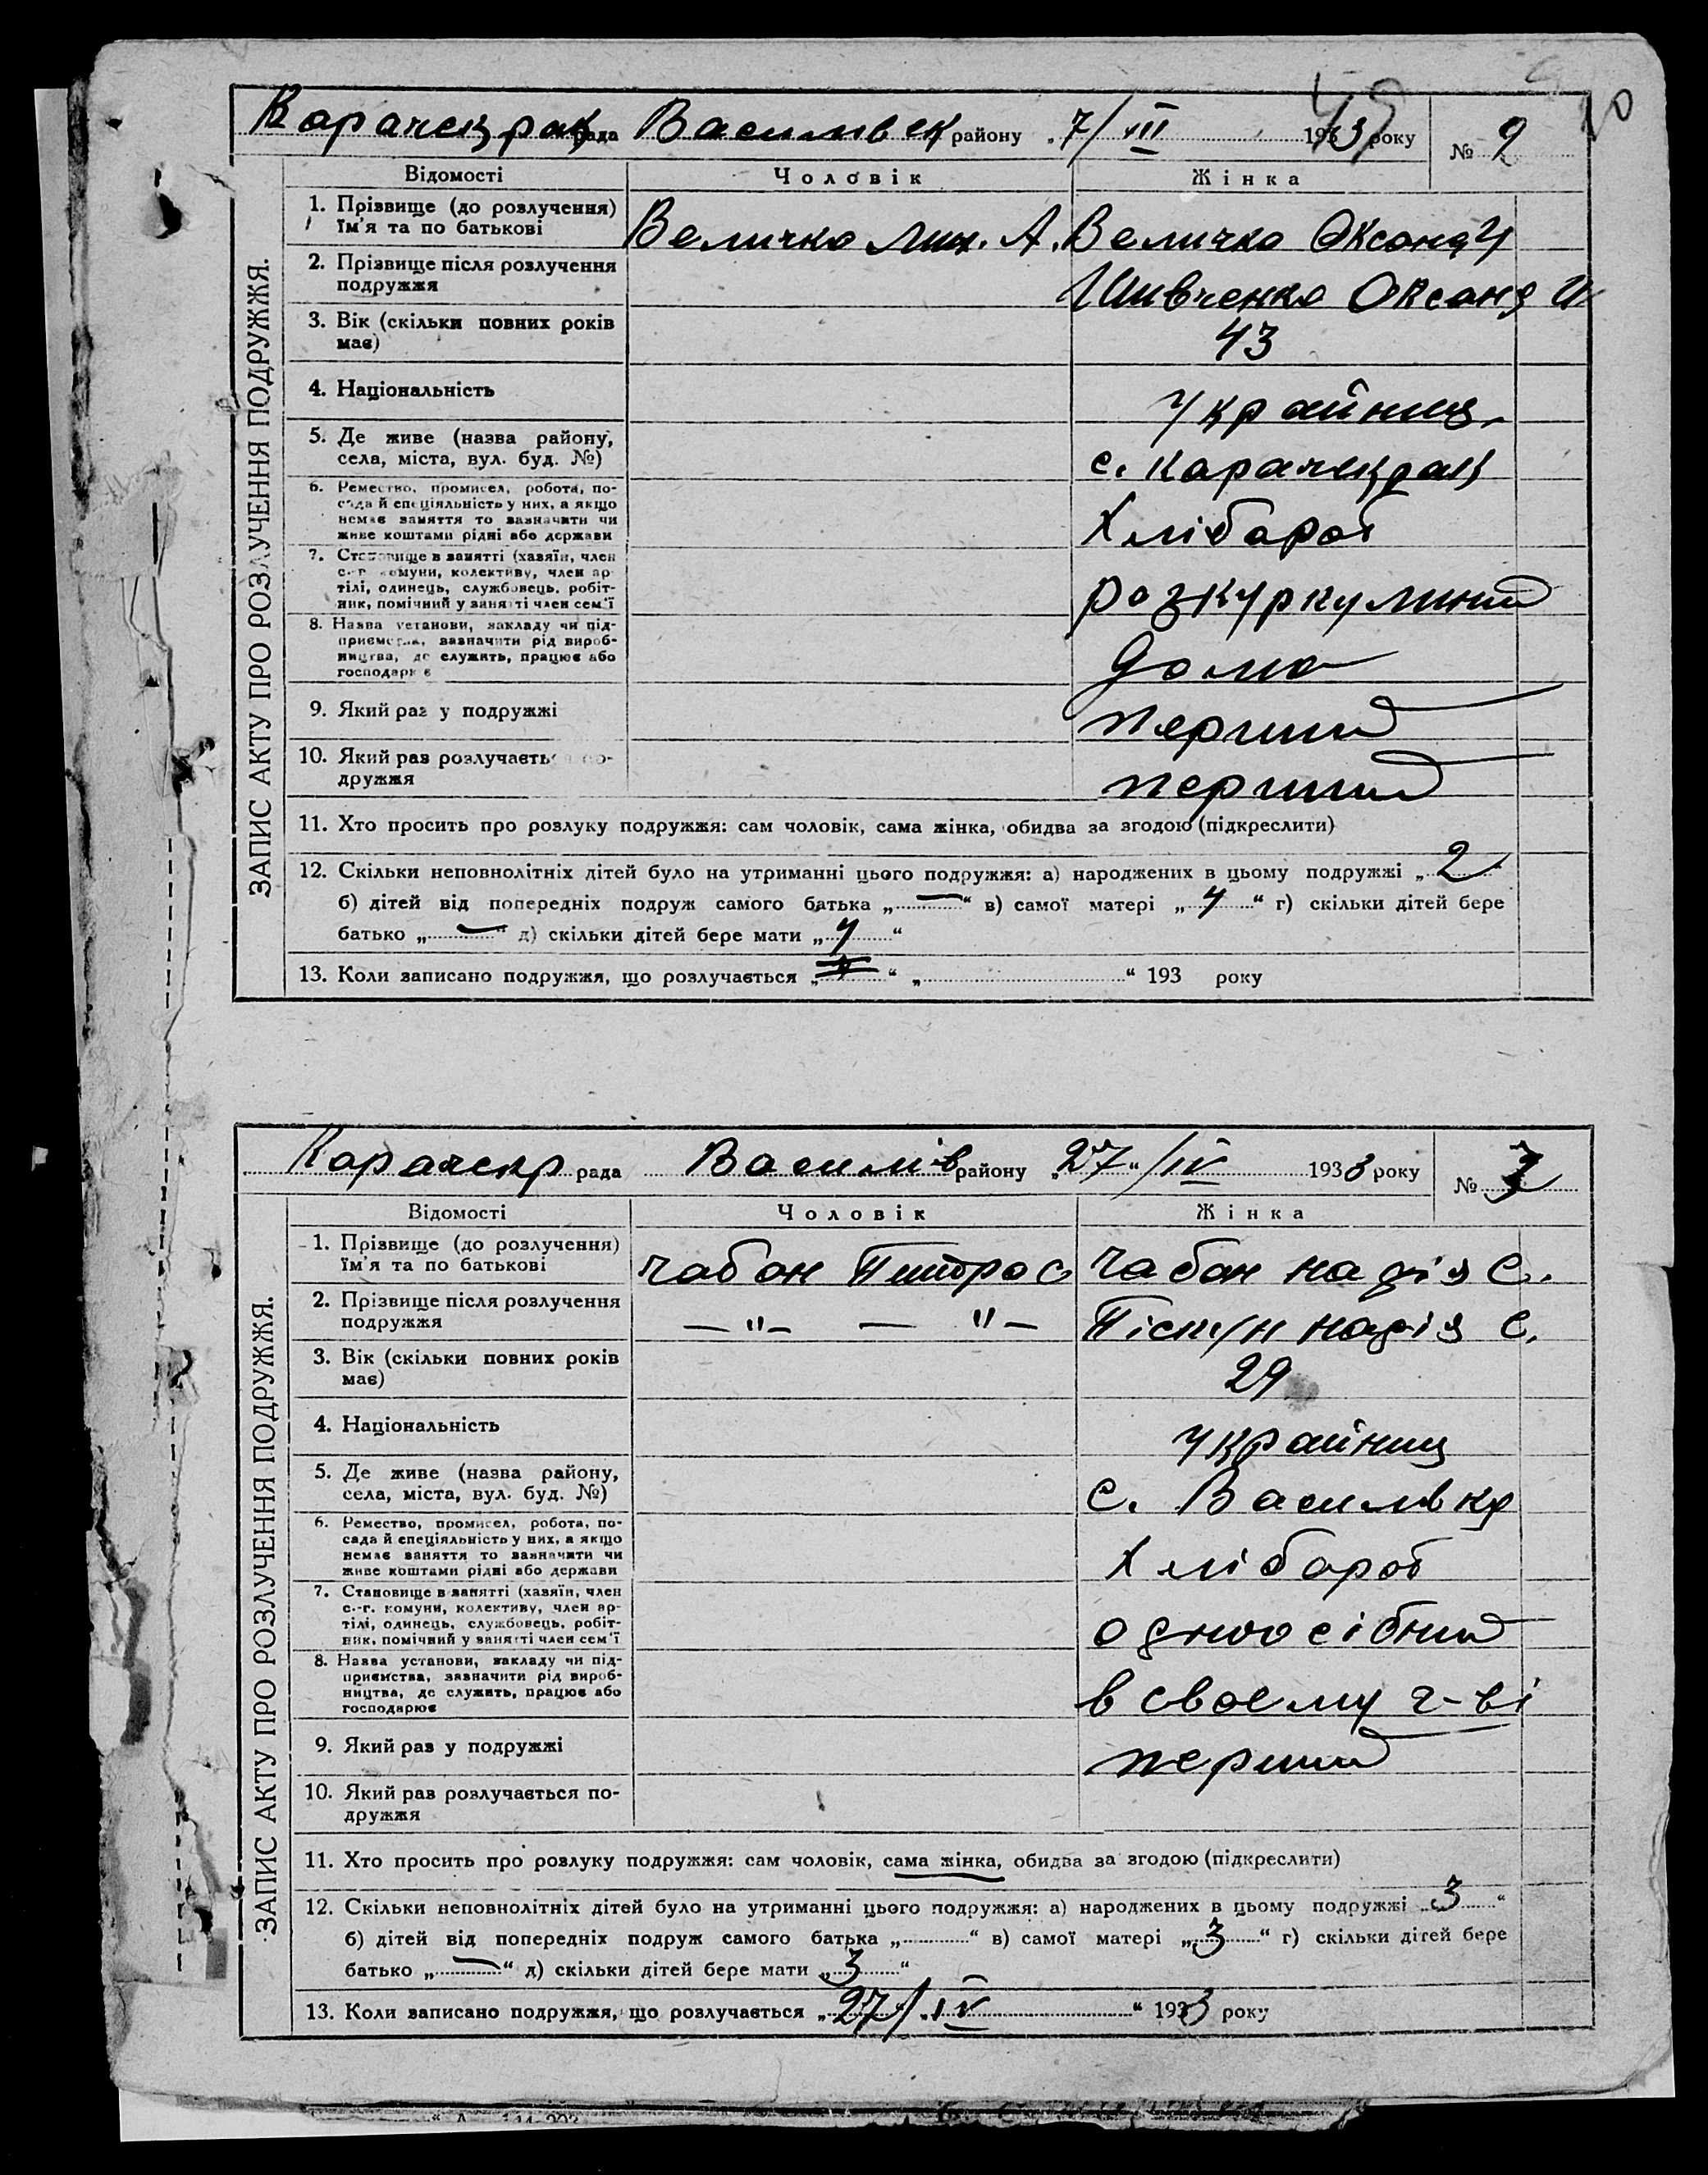 49
10
Карачекрак рада Василивск району „7/ІІІ 1933 року № 2
ЗАПИС АКТУ ПРО РОЗЛУЧЕННЯ ПОДРУЖЖЯ.
Відомості Чоловік Жінка
1. Прізвище (до розлучення) Ім'я та по батькові Величко Мих. А. Величко Оксана У
2. Прізвище після розлучення подружжя Шивченко Оксана
3. Вік (скільки повних років має) 43
4. Національність украйниц.
5. Де живе (назва району, села, міста, вул. буд. №) с. Карачекрак
6. Ремество, промисел, робота, по-
сада й спеціяльність у них, а якщо
немає заняття то зазначити чи
живе коштами рідні або держави Хлібароб
7. Становище в занятті (хазяїн, член
с.-г. комуни, колективу, член ар-
тілі, одинець, службовець, робіт-
ник, помічний у занятті член сем'ї розкуркулиний
8. Назва установи, закладу чи під-
приємства, зазначити рід вироб-
ництва, де служить, працює або
господарює дома
9. Який раз у подружжі перший
10. Який раз розлучається по-
дружжя перший
11. Хто просить про розлуку подружжя: сам чоловік, сама жінка, обидва за згодою (підкреслити)
12. Скільки неповнолітніх дітей було на утриманні цього подружжя: а) народжених в цьому подружжі „2“
б) дітей від попередніх подруж самого батька „—“ в) самої матері „4“ г) скільки дітей бере
батько „—“ д) скільки дітей бере мати „4“
13. Коли записано подружжя, що розлучається „ “ „ “ 193 року
Карачекр рада Василів району „27“/IV 1933 року № 3
ЗАПИС АКТУ ПРО РОЗЛУЧЕННЯ ПОДРУЖЖЯ.
Відомості Чоловік Жінка
1. Прізвище (до розлучення) Ім'я та по батькові Чабан Питро С Чабан Надія С.
2. Прізвище після розлучення подружжя — "— — "— Пістун Надія С.
3. Вік (скільки повних років має) 29
4. Національність украйниц
5. Де живе (назва району, села, міста, вул. буд. №) с. Василівка
6. Ремество, промисел, робота, по-
сада й спеціяльність у них, а якщо
немає заняття то зазначити чи
живе коштами рідні або держави Хлібароб
7. Становище в занятті (хазяїн, член
с.-г. комуни, колективу, член ар-
тілі, одинець, службовець, робіт-
ник, помічний у занятті член сем'ї одноосібний
8. Назва установи, закладу чи під-
приємства, зазначити рід вироб-
ництва, де служить, працює або
господарює в своєму г-ві
9. Який раз у подружжі перший
10. Який раз розлучається по-
дружжя
11. Хто просить про розлуку подружжя: сам чоловік, сама жінка, обидва за згодою (підкреслити)
12. Скільки неповнолітніх дітей було на утриманні цього подружжя: а) народжених в цьому подружжі „3“
б) дітей від попередніх подруж самого батька „ “ в) самої матері „3“ г) скільки дітей бере
батько „—“ д) скільки дітей бере мати „3“
13. Коли записано подружжя, що розлучається „27/„IV “ 1933 року